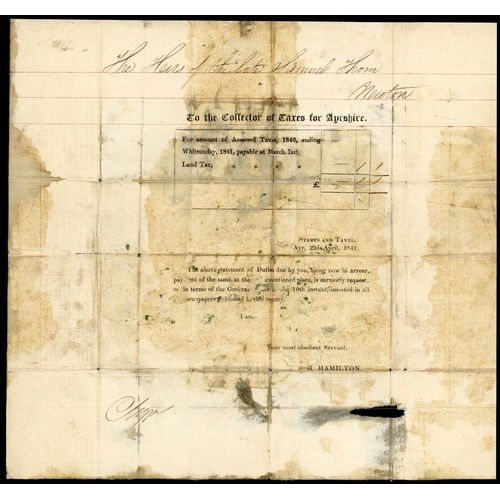 The Heirs of the late Samuel Thom
Newton
To the Collector of Taxes for Ayrshire.
For amount of Assessed Taxes, 1840, ending
Whitsunday, 1841, payable at March last,
Land Tax,
1 1
£ 1 1
STAMPS AND TAXES,
Ayr, 22d April, 1841.
The above statement of Duties due by you, being now in arrear,
pay ent of the same, at the mentioned place, is earnestly request-
in terms of the General 10th instant, inserted in all
newspapers published in this county.
I am,
Your most obedient Servant,
H. HAMILTON.
Ayr